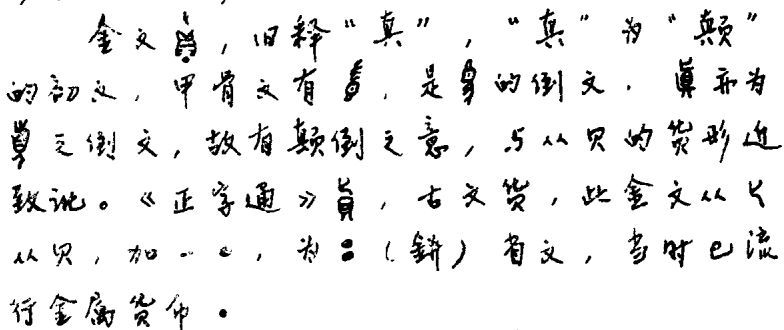 金文，旧释“真”，“真”为“颠”
的初文，甲骨文有，是的倒文．真亦为
之倒文，故有颠倒之意，与从贝的货形近
致讹。《正字通》，古文货，此金文从匕
从贝，加，为（鉼）省文，当时已流
行金属货币．